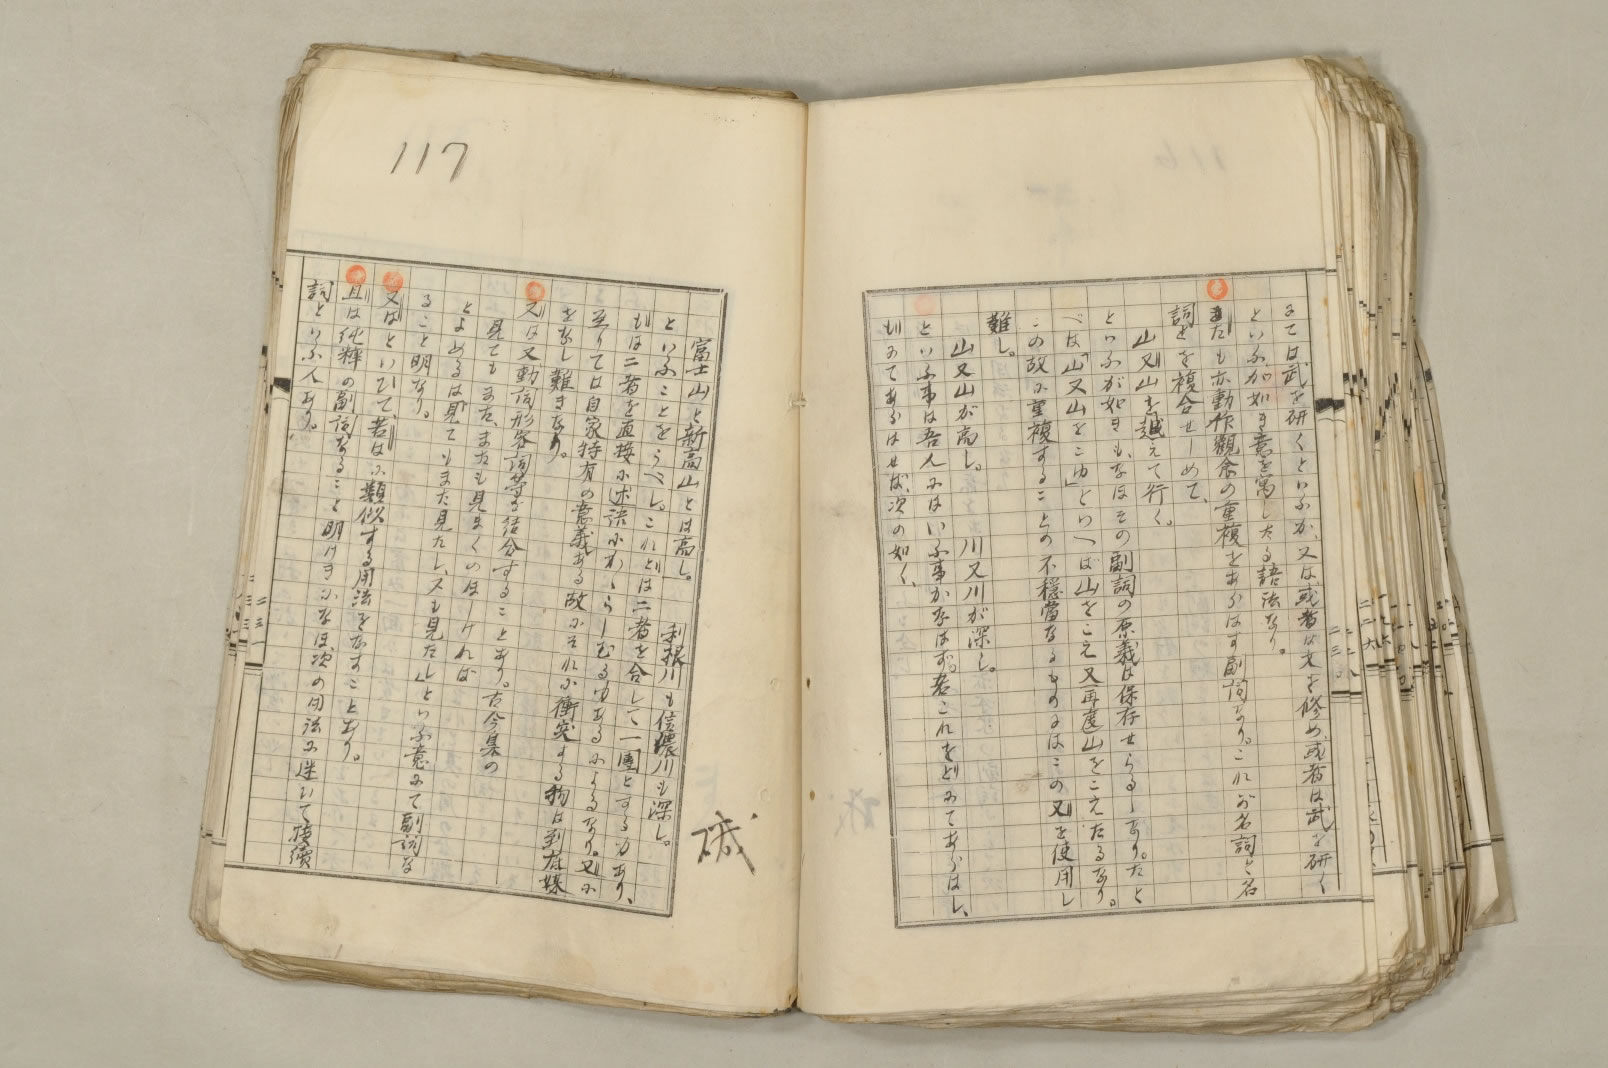 にては武を研くといふか、又は或者は文を修め、或者は武を研く
といふが如き意を寓したる語法なり。
またも亦動作観念の重複をあらはす副詞なり。これが名詞と名
詞とを複合せしめて、
山又山を越えて行く。
といふが如きも、なほその副詞の原義は保存せらるゝなり。たと
へば「山又山をこゆ」といへば山をこえ又再度山をこえたるなり。
この故に重複することの不穏当なるものにはこの又を使用し
難し。
山又山が高し。 川又川が深し。
といふ事は吾人にはいふ事かなはず。若これをどにてあらはし、
もにてあらはせば、次の如く、
117
富士山と新高山とは高し。 利根川も信濃川も深し。
といふことをうべし。これとは二者を合して一団とする力あり、
もは二者を直接に述語にわたらしむる力あるによるなり。又に
至りては自家特有の意義ある故にそれに衝突する物は到底媒
をなし難きなり。
又は又動詞形容詞等を結合することあり。古今集の
見てもまた、またも見まくのほしければ
とよめるは見てもまた見たし、又も見たしといふ意にて副詞な
ること明なり。
又はといひて、若はに類似する用法をなすことあり。
且は純粋の副詞なること明けきになほ、次の用法に迷ひて接続
詞といふ人あり。